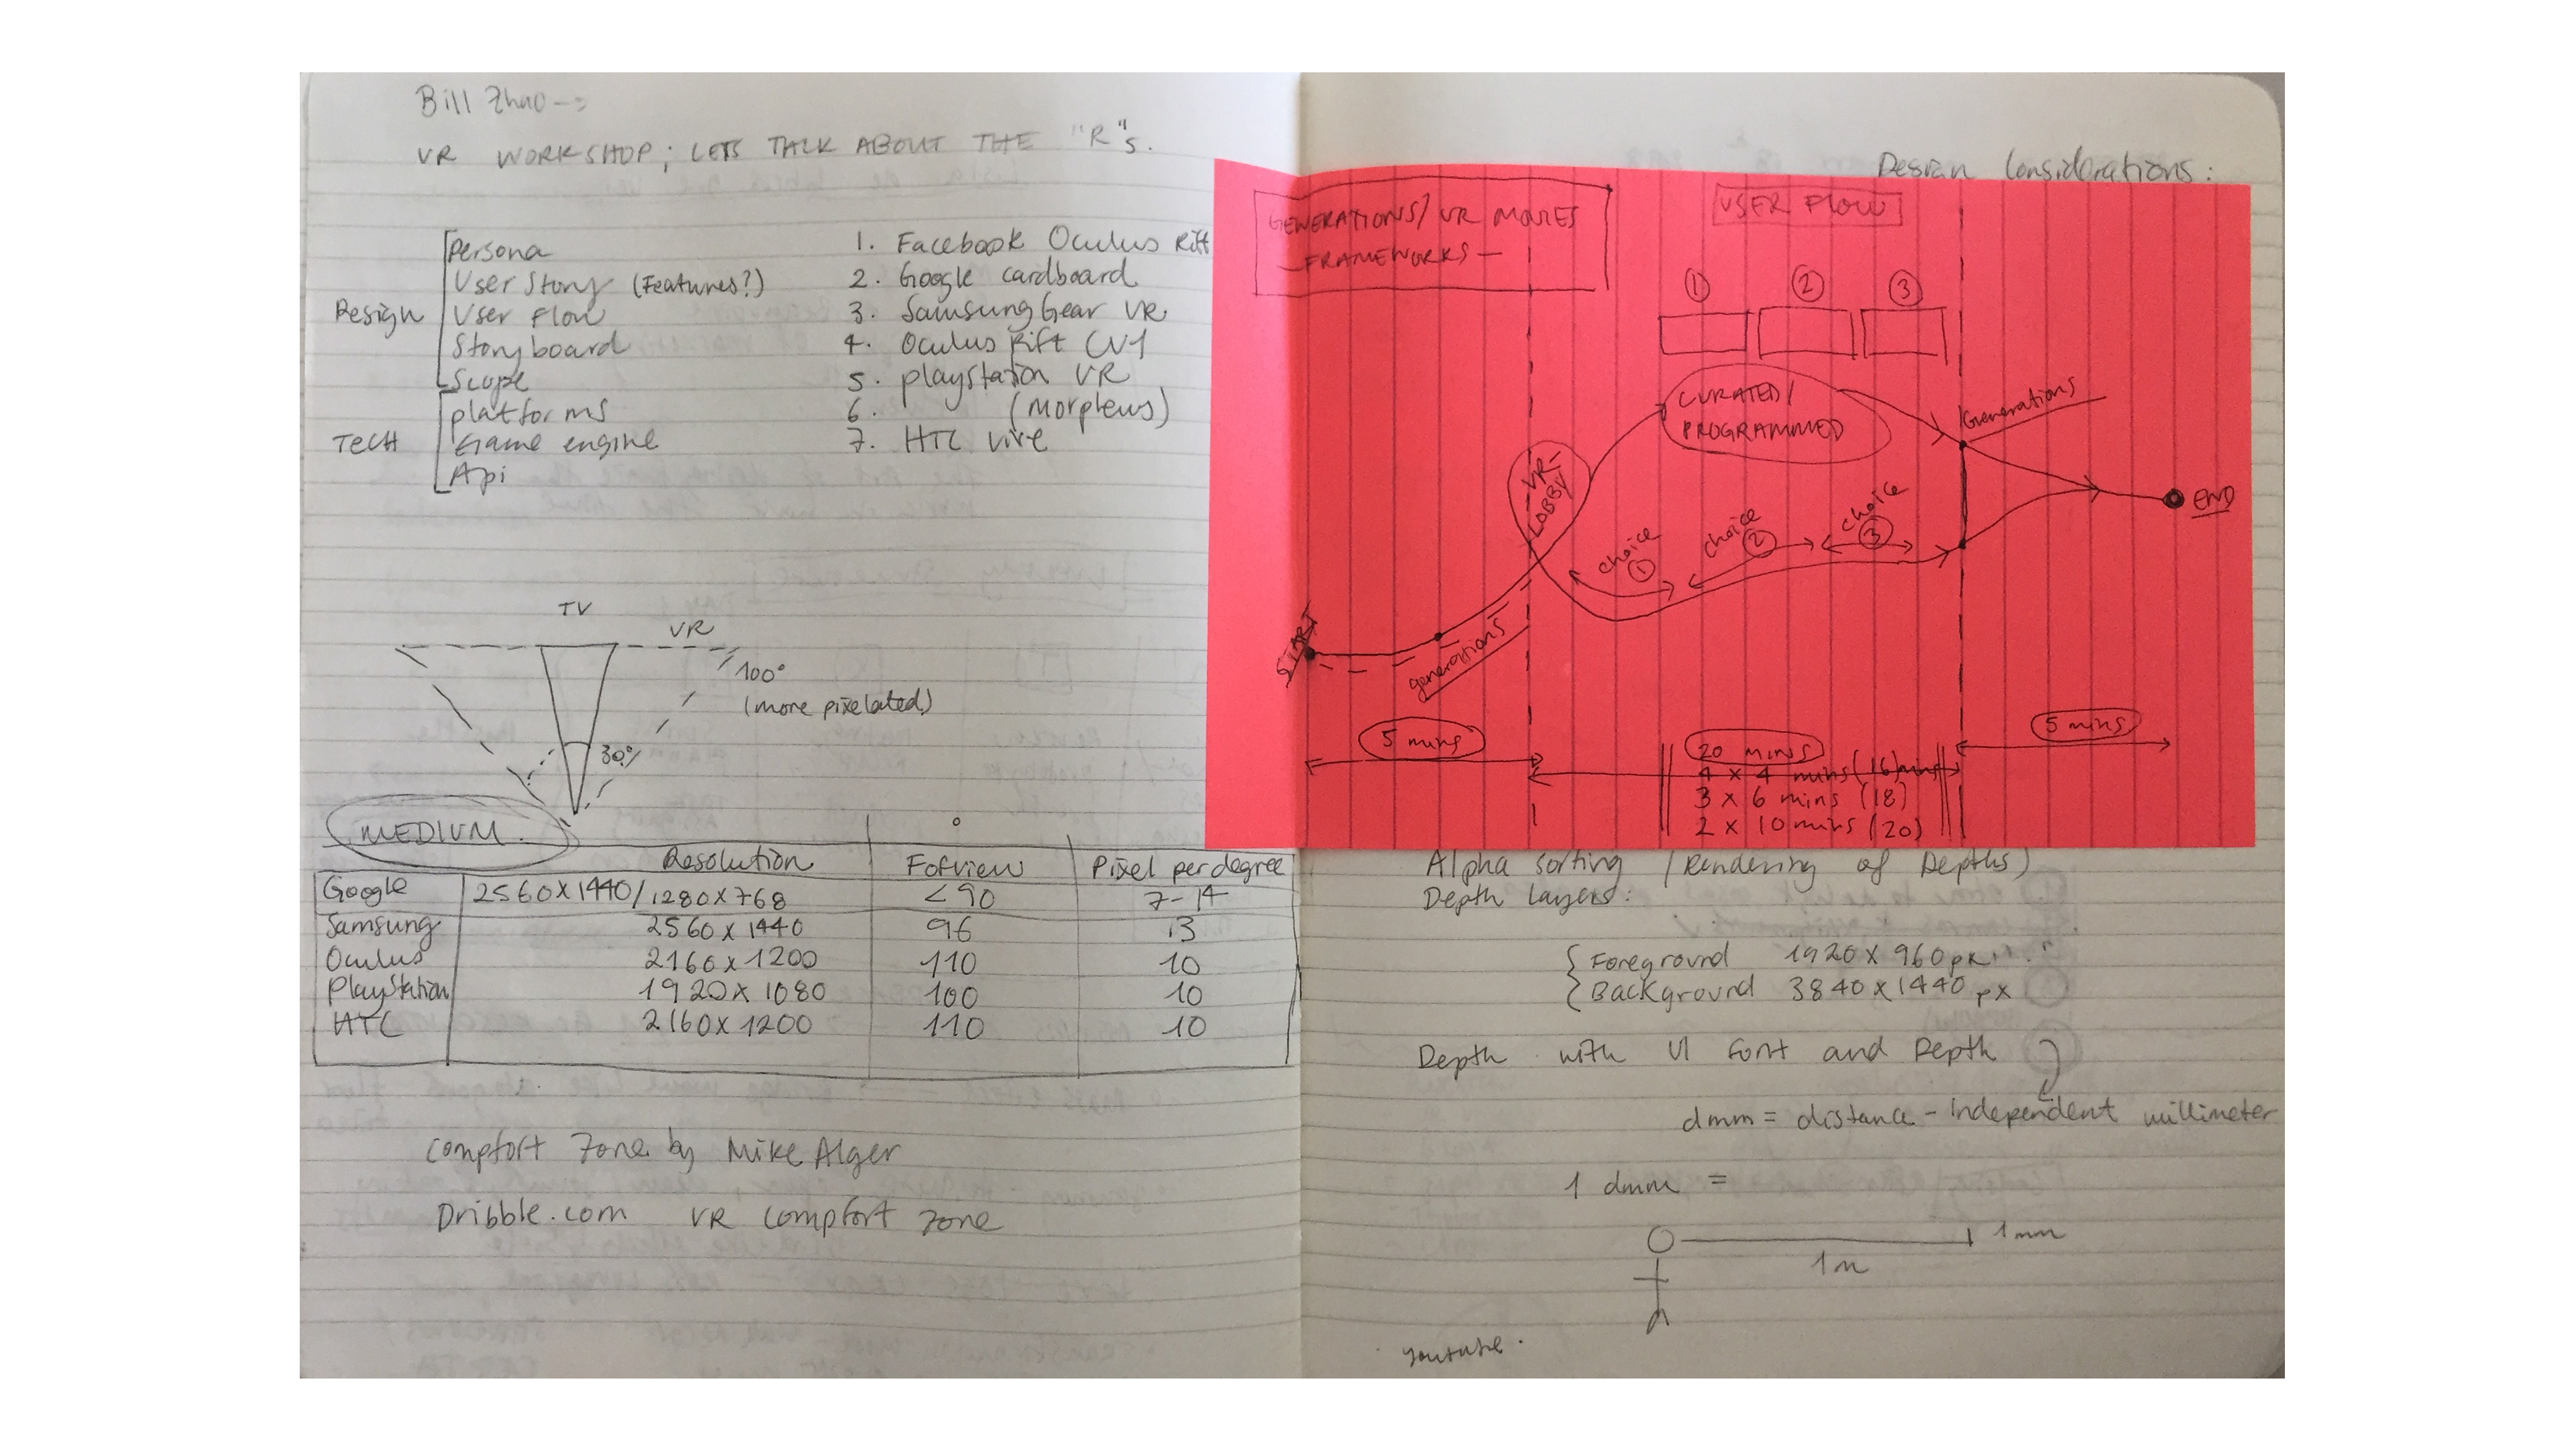 Bill Zhao ->
VR WORKSHOP; LETS TALK ABOUT THE "R"s.
Design
Persona
User Story (Features?)
User Flow
Storyboard
Scope
TECH
platforms
Game engine
Api
1. Facebook Oculus Rift
2. Google cardboard
3. Samsung Gear VR
4. Oculus Rift CV1
5. playstation VR
6. (morpleus)
7. HTC vive
TV
VR
100°
(more pixelated)
30°
MEDIUM.
°
Resolution Fofview Pixel per degree
Google 2560x1440/1280x768 <90 7-14
Samsung 2560x1440 96 13
Oculus 2160x1200 110 10
PlayStation 1920x1080 100 10
HTC 2160x1200 110 10
Compfort Zone by Mike Alger
Dribble.com VR compfort zone
Design Considerations:
GENERATIONS/ VR MOVIES
-FRAMEWORKS-
USER FLOW
1 2 3
CURATED/
PROGRAMMED
Generations
VR-
LOBBY
choice 1
choice 2
choice 3
END
START
generations
5 mins
20 mins
4 x 4 mins (16) mins
3 x 6 mins (18)
2 x 10 mins (20)
5 mins
Alpha sorting (Rendering of Depths)
Depth layers:
Foreground 1920x960px
Background 3840x1440px
Depth with UI Font and Depth
dmm = distance - Independent millimeter
1 dmm =
1mm
1m
youtube.